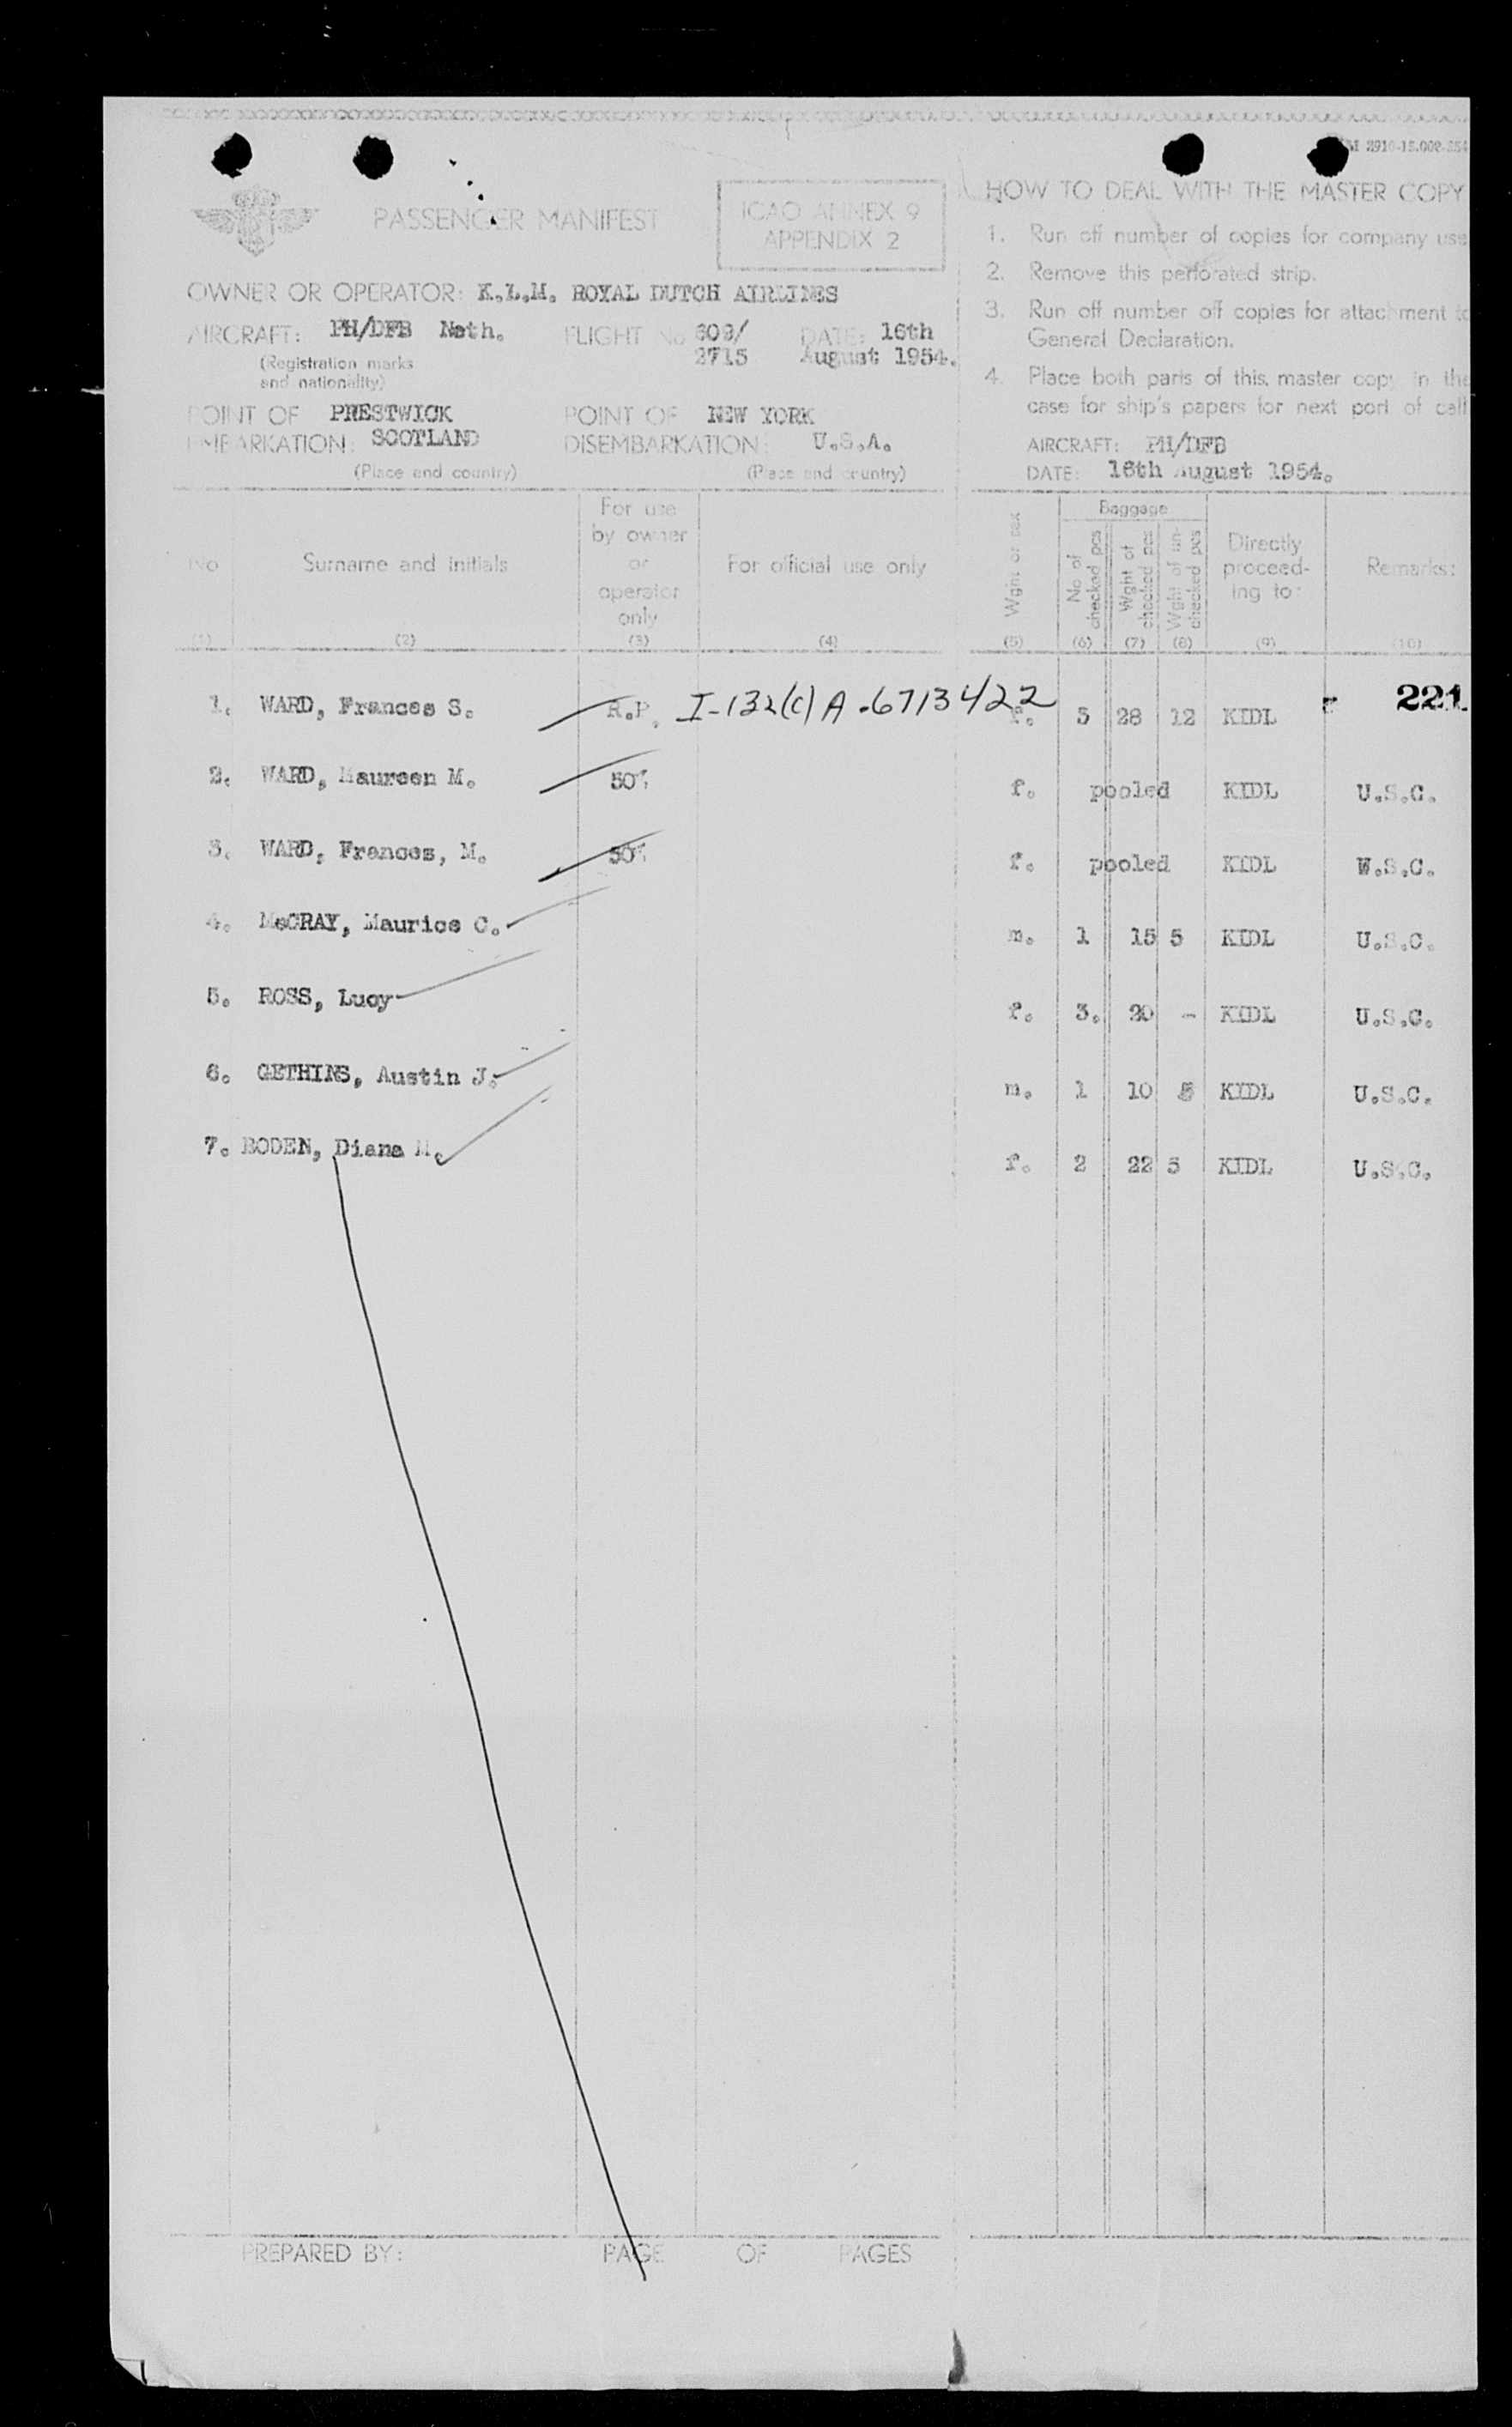 2910-15.000-354
PASSENGER MANIFEST
ICAO ANNEX 9
APPENDIX 2
OWNER OR OPERATOR: K.L.M. ROYAL DUTCH AIRLINES
AIRCRAFT: PH/DFB Neth. FLIGHT No 609/ DATE: 16th
(Registration marks 2715 August 1954.
and nationality)
POINT OF PRESTWICK POINT OF NEW YORK
EMBARKATION: SCOTLAND DISEMBARKATION: U.S.A.
(Place and country) (Place and country)
HOW TO DEAL WITH THE MASTER COPY
1. Run off number of copies for company use
2. Remove this perforated strip.
3. Run off number off copies for attachment to
General Declaration.
4. Place both parts of this master copy in the
case for ship's papers for next port of call
AIRCRAFT: PH/DFB
DATE: 16th August 1954.
No Surname and initials For use by owner or operator only For official use only Wght or sex Baggage No of checked pcs Wght of checked pcs Wght of un-checked pcs Directly proceed-ing to: Remarks:
(1) (2) (3) (4) (5) (6) (7) (8) (9) (10)
1. WARD, Frances S. R.P. I-132(c) A-6713422 f. 5 28 12 KIDL 221
2. WARD, Maureen M. 50% f. pooled KIDL U.S.C.
3. WARD, Frances, M. 50% f. pooled KIDL U.S.C.
4. McCRAY, Maurice C. m. 1 15 5 KIDL U.S.C.
5. ROSS, Lucy f. 3. 20 - KIDL U.S.C.
6. GETHINS, Austin J. m. 1 10 5 KIDL U.S.C.
7. BODEN, Diana M. f. 2 22 5 KIDL U.S.C.
PREPARED BY: PAGE OF PAGES